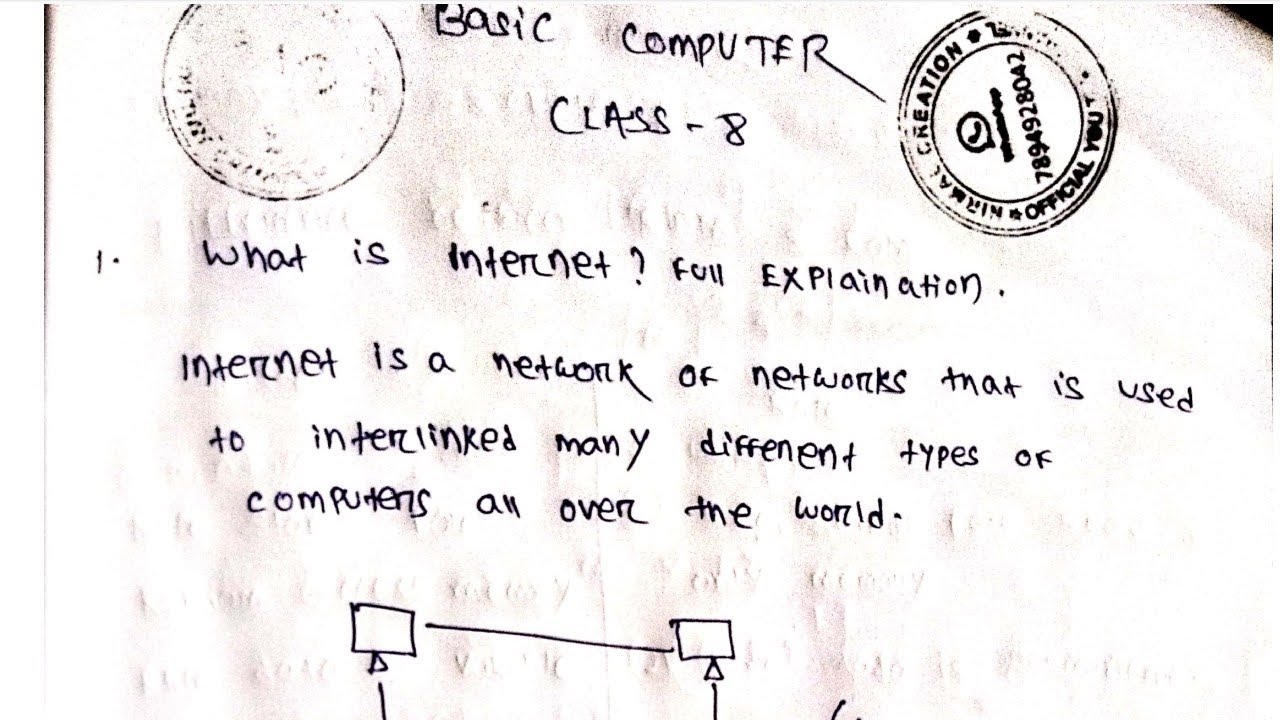 Basic COMPUTER
CLASS - 8
NIRMAL CREATION
7894928042
OFFICIAL YOU
1. What is Internet? Full EXPlaination.
Internet is a network of networks that is used
to interlinked many diffenent types of
computers all over the world.